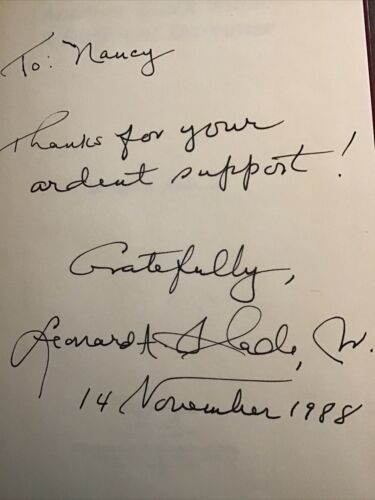 To: Nancy
Thanks for your
ardent support!
Gratefully,
Leonard A. Slade, Jr.
14 November 1988